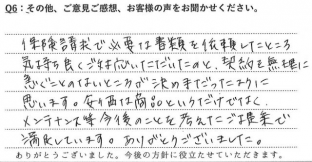 Q6：その他、ご意見ご感想、お客様の声をお聞かせください。
保険請求で必要な書類を依頼したところ
気持ち良くご対応いただいたのと、契約を無理に
急ぐことのないところが決め手だったように
思います。安い西は商品というだけではなく、
メンテナンス等今後のことを考えたご提案で
満足しています。ありがとうございました。
ありがとうございました。今後の方針に役立たせていただきます。